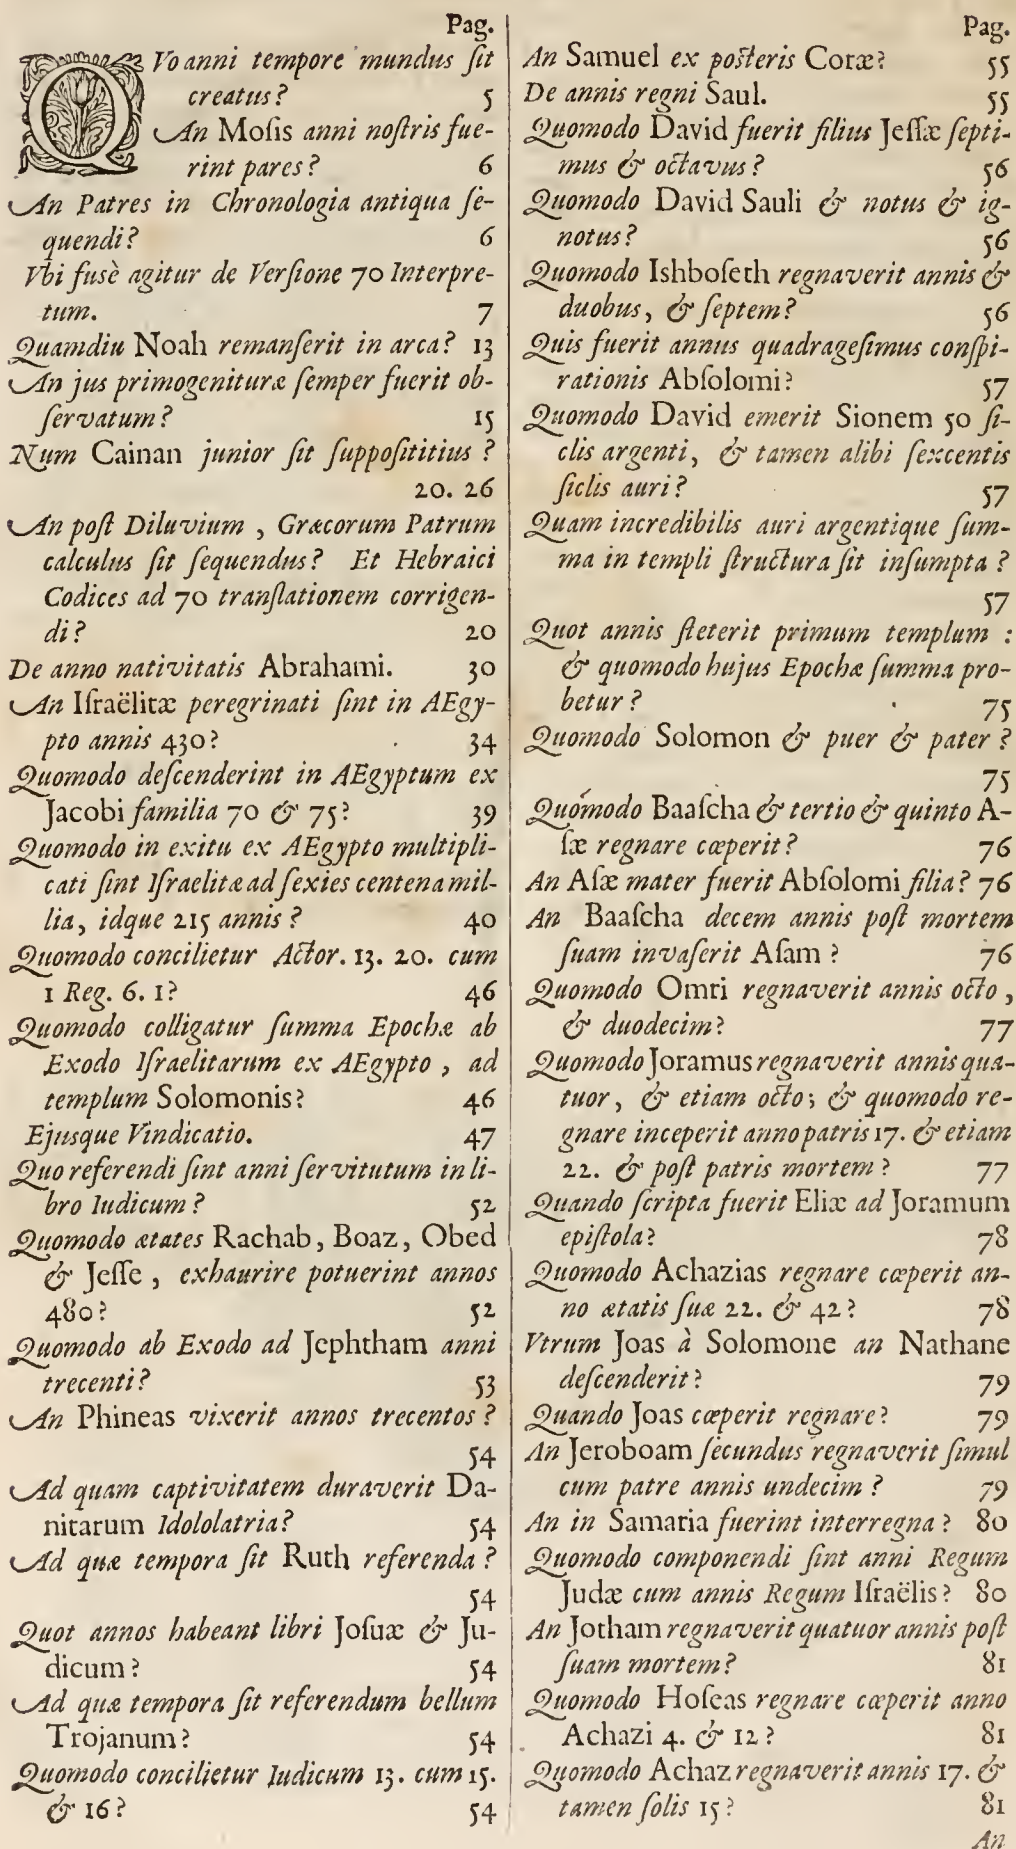 Pag.
QVo anni tempore mundus ſit
creatus? 5
An Moſis anni noſtris fue-
rint pares? 6
An Patres in Chronologia antiqua ſe-
quendi? 6
Vbi fusè agitur de Verſione 70 Interpre-
tum. 7
Quamdiu Noah remanſerit in arca? 13
An jus primogenituræ ſemper fuerit ob-
ſervatum? 15
Num Cainan junior ſit ſuppoſititius?
20. 26
An poſt Diluvium, Græcorum Patrum
calculus ſit ſequendus? Et Hebraici
Codices ad 70 tranſlationem corrigen-
di? 20
De anno nativitatis Abrahami. 30
An Iſraëlitæ peregrinati ſint in AEgy-
pto annis 430? 34
Quomodo deſcenderint in AEgyptum ex
Jacobi familia 70 & 75? 39
Quomodo in exitu ex AEgypto multipli-
cati ſint Iſraelitæ ad ſexies centena mil-
lia, idque 215 annis? 40
Quomodo concilietur Actor. 13. 20. cum
1 Reg. 6. 1? 46
Quomodo colligatur ſumma Epochæ ab
Exodo Iſraelitarum ex AEgypto, ad
templum Solomonis? 46
Ejusque Vindicatio. 47
Quo referendi ſint anni ſervitutum in li-
bro Iudicum? 52
Quomodo ætates Rachab, Boaz, Obed
& Jeſſe, exhaurire potuerint annos
480? 52
Quomodo ab Exodo ad Jephtham anni
trecenti? 53
An Phineas vixerit annos trecentos?
54
Ad quam captivitatem duraverit Da-
nitarum Idololatria? 54
Ad quæ tempora ſit Ruth referenda?
54
Quot annos habeant libri Joſuæ & Ju-
dicum? 54
Ad quæ tempora ſit referendum bellum
Trojanum? 54
Quomodo concilietur Iudicum 13. cum 15.
& 16? 54
Pag.
An Samuel ex poſteris Coræ? 55
De annis regni Saul. 55
Quomodo David fuerit filius Jeſſæ ſepti-
mus & octavus? 56
Quomodo David Sauli & notus & ig-
notus? 56
Quomodo Ishboſeth regnaverit annis &
duobus, & ſeptem? 56
Quis fuerit annus quadrageſimus conſpi-
rationis Abſolomi? 57
Quomodo David emerit Sionem 50 ſi-
clis argenti, & tamen alibi ſexcentis
ſiclis auri? 57
Quam incredibilis auri argentique ſum-
ma in templi ſtructura ſit inſumpta?
57
Quot annis ſteterit primum templum:
& quomodo hujus Epochæ ſumma pro-
betur? 75
Quomodo Solomon & puer & pater?
75
Quómodo Baaſcha & tertio & quinto A-
ſæ regnare cœperit? 76
An Aſæ mater fuerit Abſolomi filia? 76
An Baaſcha decem annis poſt mortem
ſuam invaſerit Aſam? 76
Quomodo Omri regnaverit annis octo,
& duodecim? 77
Quomodo Joramus regnaverit annis qua-
tuor, & etiam octo; & quomodo re-
gnare inceperit anno patris 17. & etiam
22. & poſt patris mortem? 77
Quando ſcripta fuerit Eliæ ad Joramum
epiſtola? 78
Quomodo Achazias regnare cœperit an-
no ætatis ſuæ 22. & 42? 78
Vtrum Joas à Solomone an Nathane
deſcenderit? 79
Quando Joas cœperit regnare? 79
An Jeroboam ſecundus regnaverit ſimul
cum patre annis undecim? 79
An in Samaria fuerint interregna? 80
Quomodo componendi ſint anni Regum
Judæ cum annis Regum Iſraëlis? 80
An Jotham regnaverit quatuor annis poſt
ſuam mortem? 81
Quomodo Hoſeas regnare cœperit anno
Achazi 4. & 12? 81
Quomodo Achaz regnaverit annis 17. &
tamen ſolis 15? 81
An